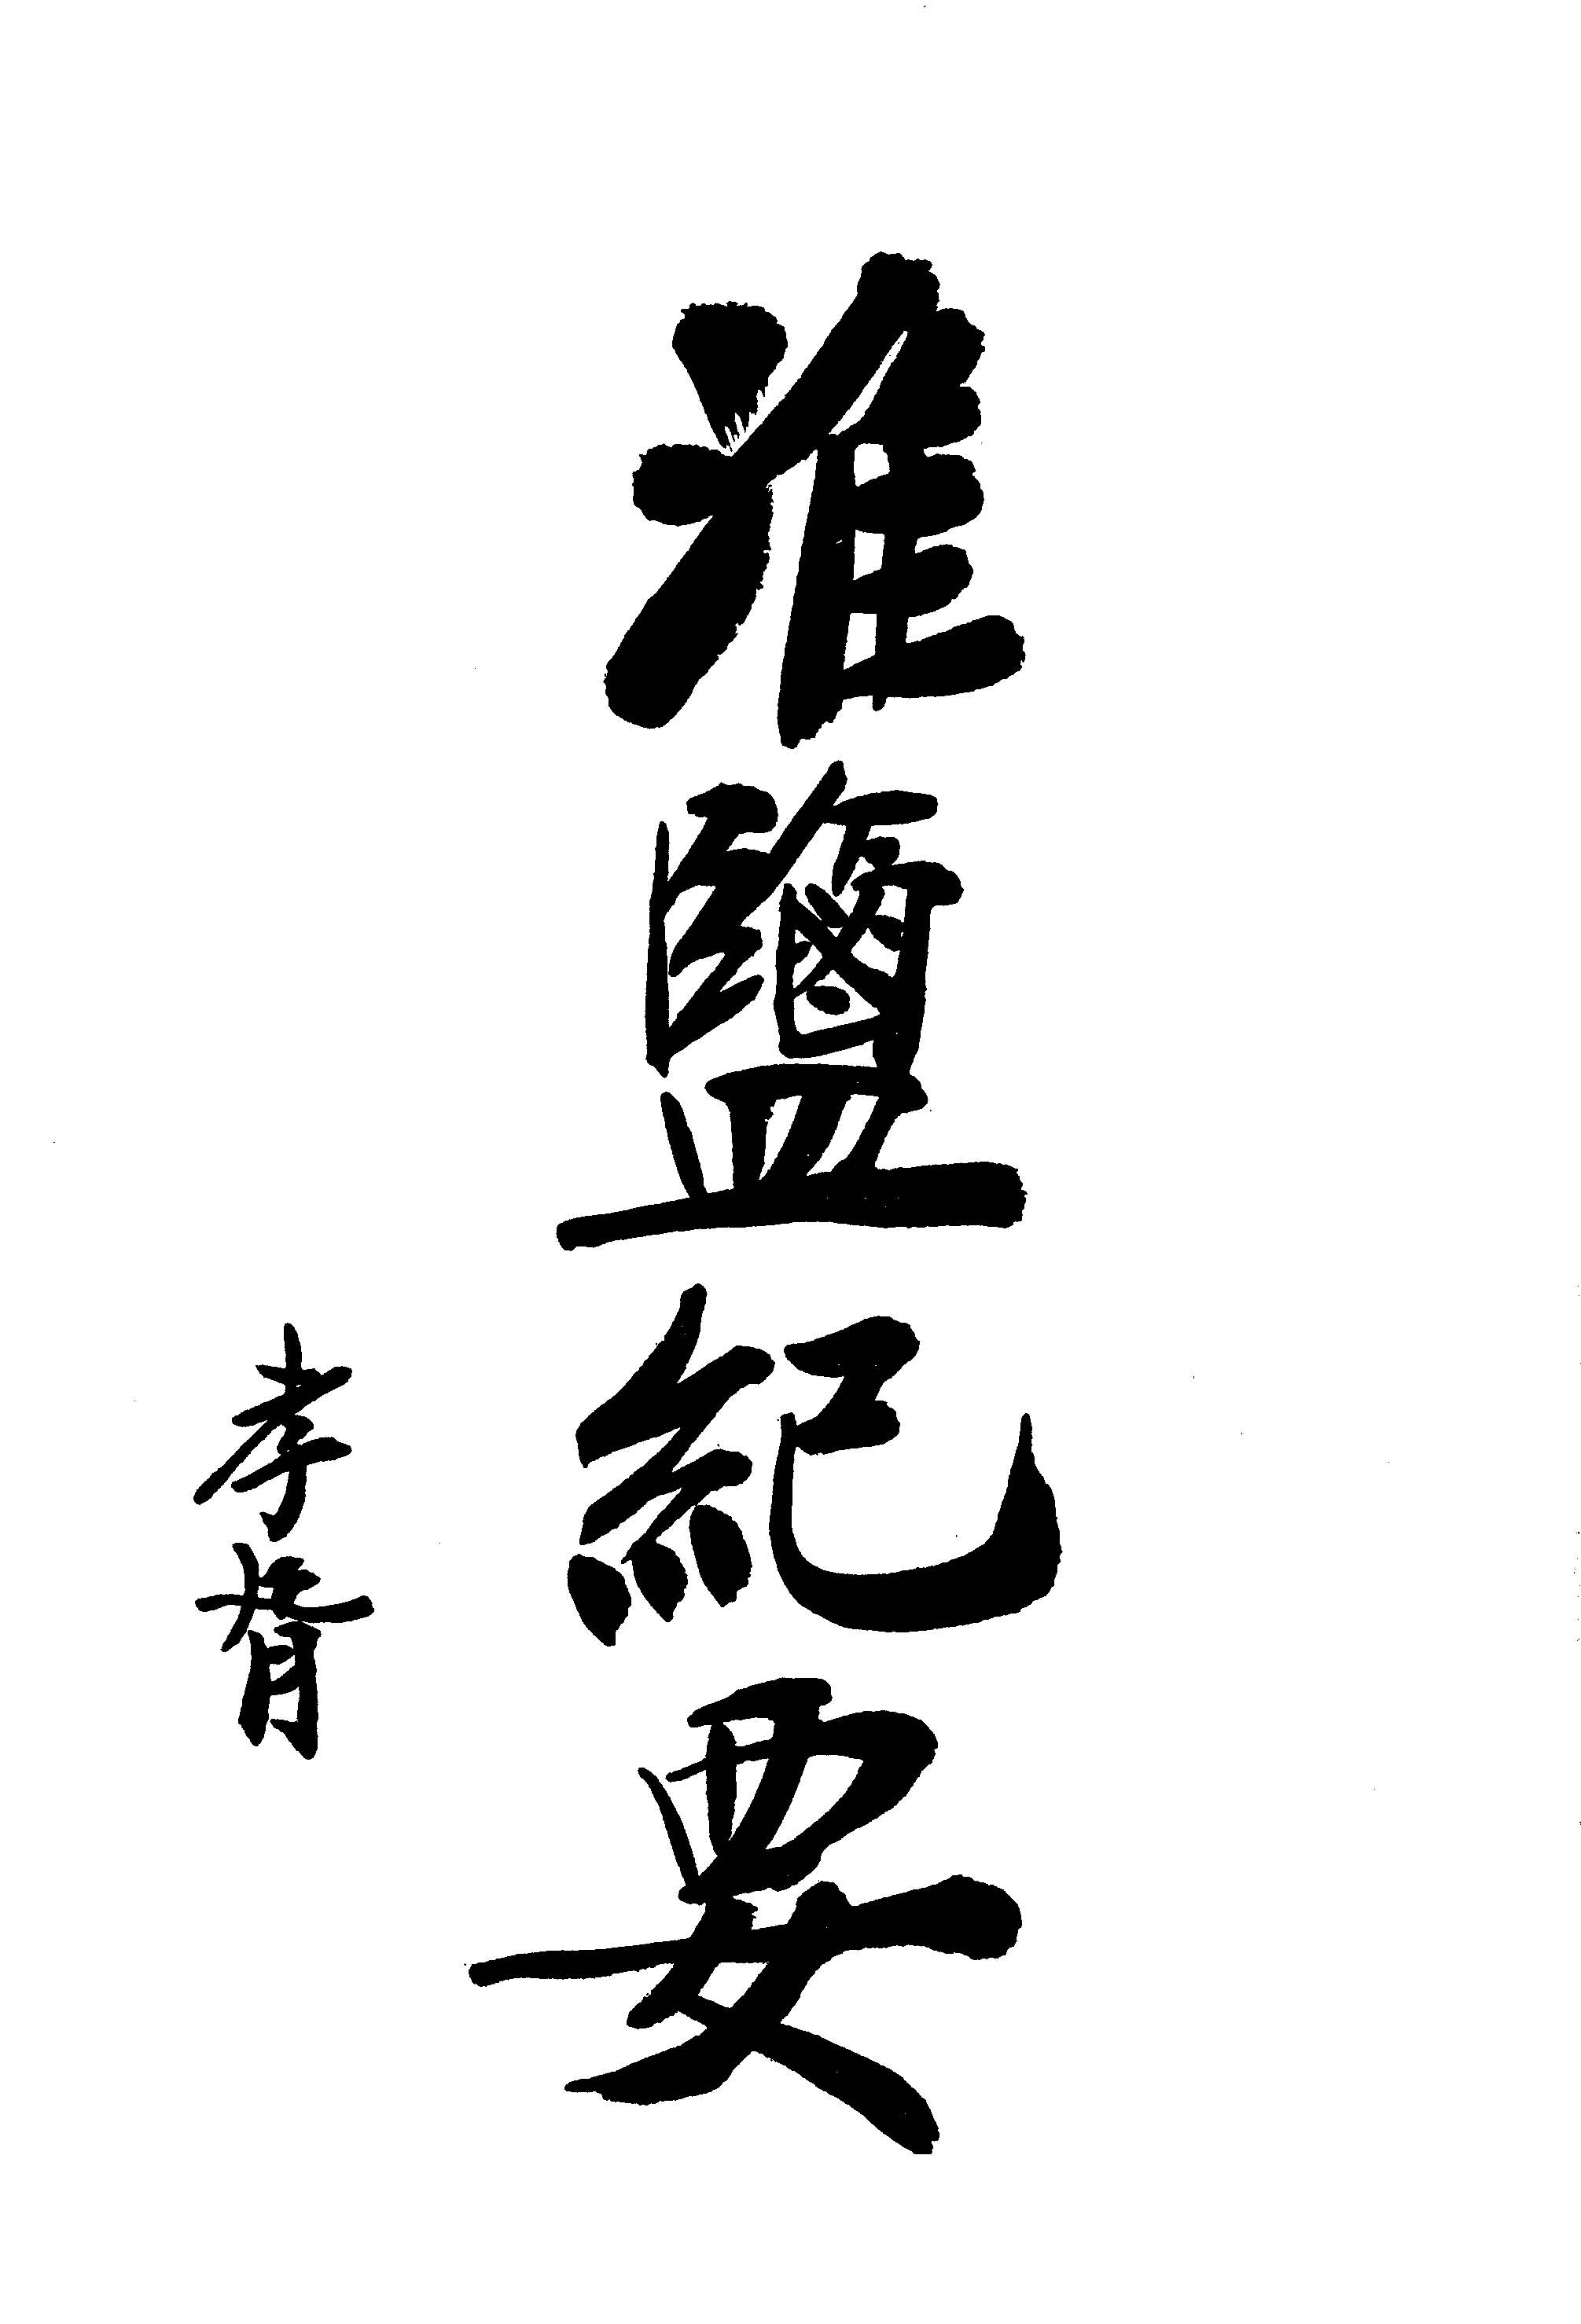 淮鹽紀要
孝胥